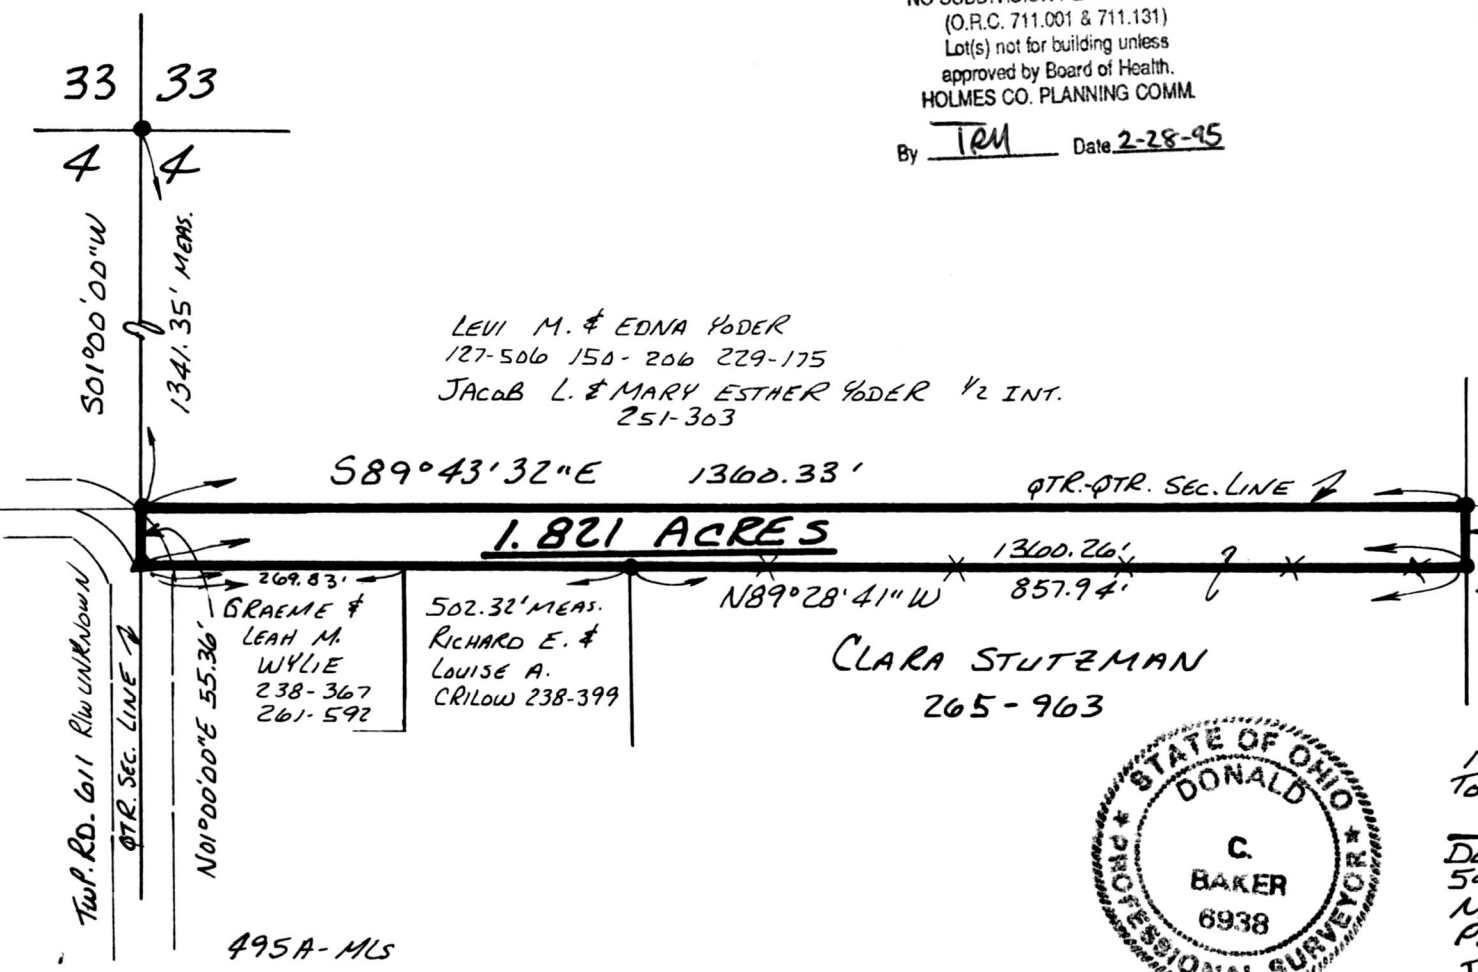 (O.R.C. 711.001 & 711.131)
Lot(s) not for building unless
approved by Board of Health.
HOLMES CO. PLANNING COMM.
By TRM Date 2-28-95
33 33
4 4
S01°00'00"W
1341.35' MEAS.
LEVI M. & EDNA YODER
127-506 150-206 229-175
JACOB L. & MARY ESTHER YODER 1/2 INT.
251-303
S89°43'32"E 1360.33'
QTR.-QTR. SEC. LINE
1.821 ACRES
1360.26'
N89°28'41"W 857.94'
269.83'
GRAEME &
LEAH M.
WYLIE
238-367
261-592
502.32' MEAS.
RICHARD E. &
LOUISE A.
CRILOW 238-399
CLARA STUTZMAN
265-963
TWP. RD. 611 R/W UNKNOWN
QTR. SEC. LINE
N01°00'00"E 55.36'
495A-MLS
STATE OF OHIO
DONALD
C.
BAKER
6938
PROFESSIONAL SURVEYOR